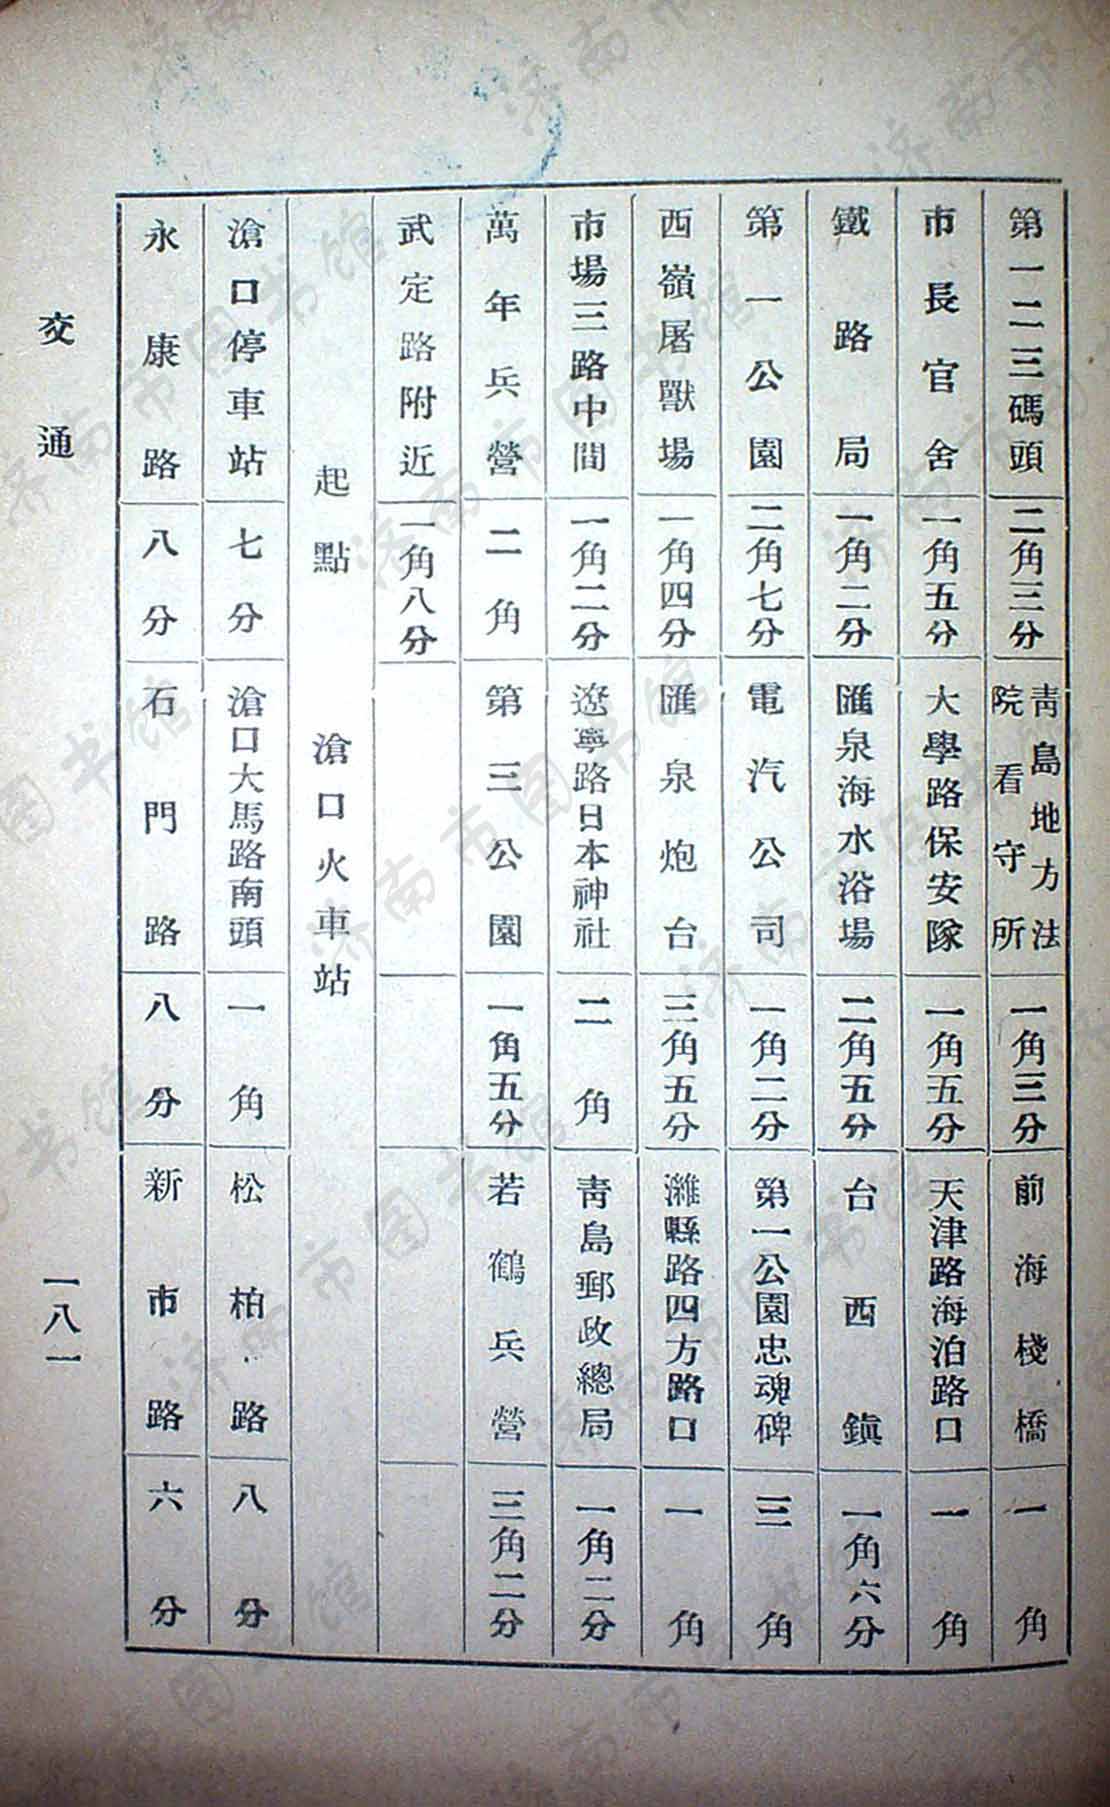 第一二三碼頭 二角三分 青島地方法院看守所 一角三分 前海棧橋 一角
市長官舍 一角五分 大學路保安隊 一角五分 天津路海泊路口 一角
鐵路局 一角二分 匯泉海水浴場 二角五分 台西鎮 一角六分
第一公園 二角七分 電汽公司 一角二分 第一公園忠魂碑 三角
西嶺屠獸場 一角四分 匯泉炮台 三角五分 濰縣路四方路口 一角
市場三路中間 一角二分 遼寧路日本神社 二角 青島郵政總局 一角二分
萬年兵營 二角 第三公園 一角五分 若鶴兵營 三角二分
武定路附近 一角八分
起點 滄口火車站
滄口停車站 七分 滄口大馬路南頭 一角 松柏路 八分
永康路 八分 石門路 八分 新市路 六分
交通
一八一
济南市图书馆